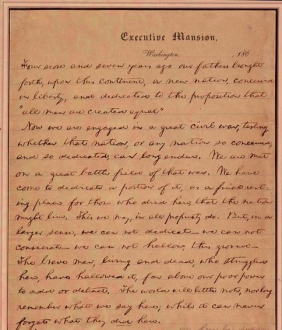 Executive Mansion,
Washington, , 186
Four score and seven years ago our fathers brought
forth, upon this continent, a new nation, conceived
in liberty, and dedicated to the proposition that
"all men are created equal"
Now we are engaged in a great civil war, testing
whether that nation, or any nation so conceived,
and so dedicated, can long endure. We are met
on a great battle field of that war. We have
come to dedicate a portion of it, as a final rest-
ing place for those who died here, that the nation
might live. This we may, in all propriety do. But, in a
larger sense, we can not dedicate — we can not
consecrate — we can not hallow, this ground —
The brave men, living and dead, who struggled
here, have hallowed it, far above our poor power
to add or detract. The world will little note, nor long
remember what we say here; while it can never
forget what they did here.